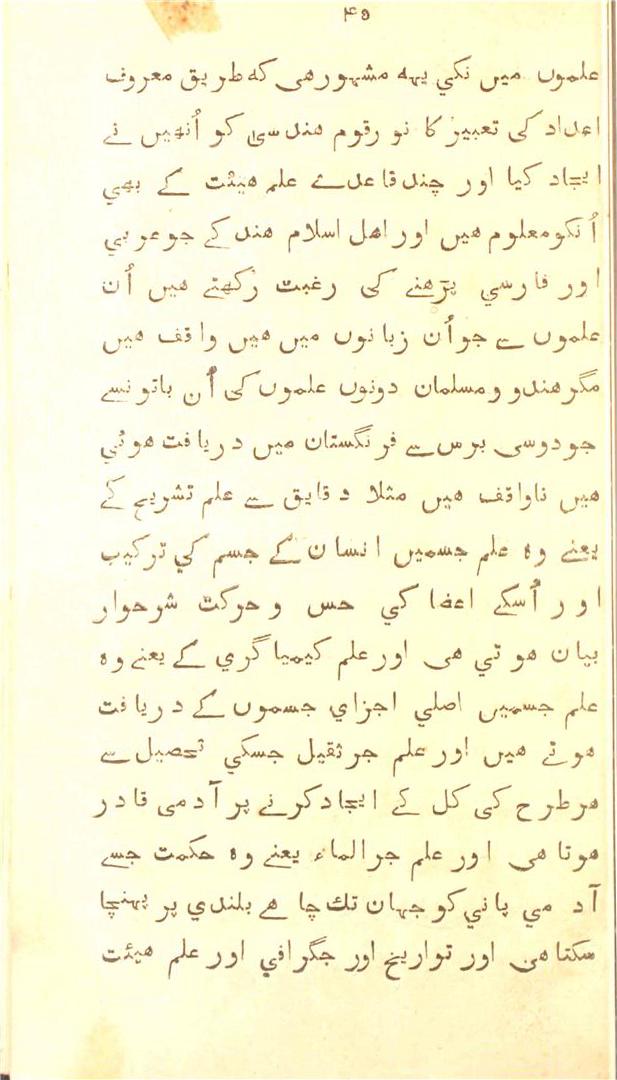 ۴۹
علموں میں نکي یہہ مشہور هی که طریق معروف
اعداد کی تعبیر کا نو رقوم هندسی کو اُنھیں نے
ایجاد کیا اور چند قاعدے علم هیئت کے بھي
اُنکو معلوم هیں اور اهل اسلام هند کے جو عربي
اور فارسي پڑهنے کی رغبت رکھتے هیں اُن
علموں سے جو اُن زبانوں میں هیں واقف هیں
مگر هندو و مسلمان دونوں علموں کی اُن باتونسے
جو دوسی برس سے فرنگستان میں دریافت هوئي
هیں ناواقف هیں مثلا دقایق سے علم تشریح کے
یعنے وہ علم جسمیں انسان کے جسم کي ترکیب
اور اُسکے اعضا کي حس و حرکت شرحوار
بیان هوتي هی اور علم کیمیاگري کے یعنے وہ
علم جسمیں اصلي اجزاي جسموں کے دریافت
هوتے هیں اور علم جرثقیل جسکي تحصیل سے
هر طرح کی کل کے ایجاد کرنے پر آدمی قادر
هوتا هی اور علم جرالماء یعنے وہ حکمت جسے
آدمي پاني کو جہان تك چاهے بلندي پر پہنچا
سکتا هی اور تواریخ اور جگرافي اور علم هیئت